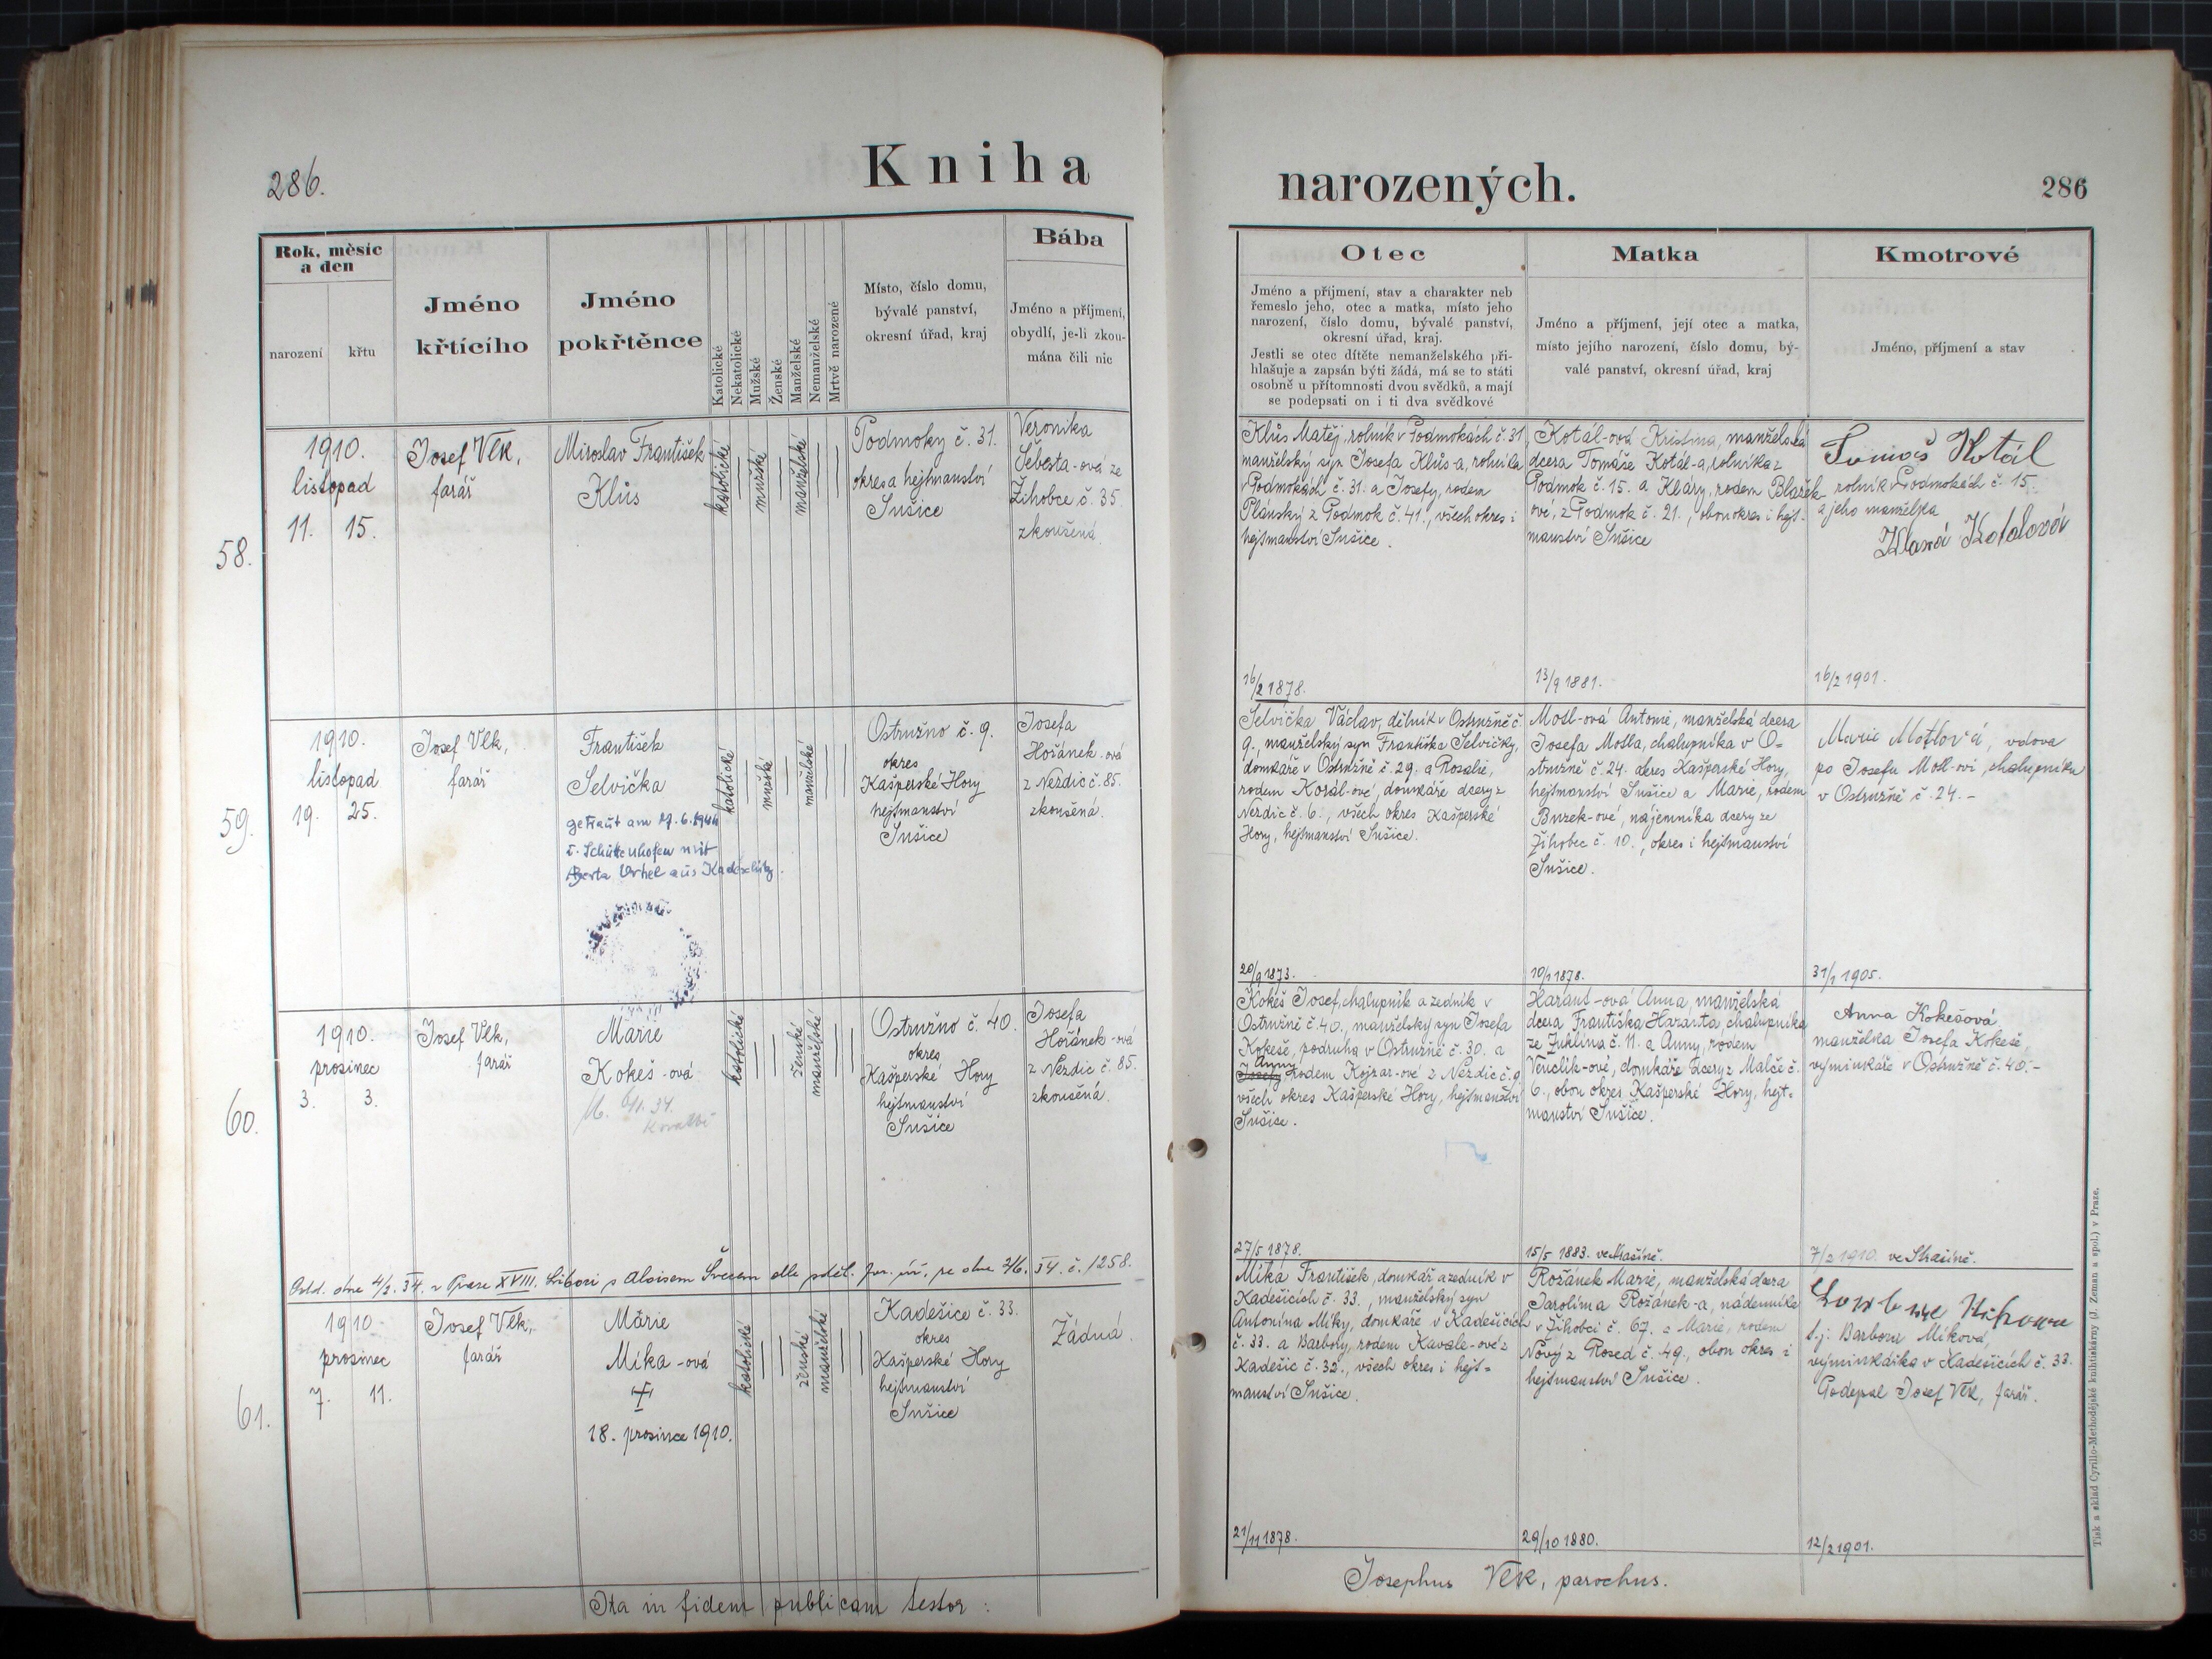 286.
Kniha
narozených.
286
Rok, měsíc
a den
narození
křtu
Jméno
křtícího
Jméno
pokřtěnce
Katolické
Nekatolické
Mužské
Ženské
Manželské
Nemanželské
Mrtvě narozené
Místo, číslo domu,
bývalé panství,
okresní úřad, kraj
Bába
Jméno a příjmení,
obydlí, je-li zkou-
mána čili nic
Otec
Jméno a příjmení, stav a charakter neb
řemeslo jeho, otec a matka, místo jeho
narození, číslo domu, bývalé panství,
okresní úřad, kraj.
Jestli se otec dítěte nemanželského při-
hlašuje a zapsán býti žádá, má se to státi
osobně u přítomnosti dvou svědků, a mají
se podepsati on i ti dva svědkové
Matka
Jméno a příjmení, její otec a matka,
místo jejího narození, číslo domu, bý-
valé panství, okresní úřad, kraj
Kmotrové
Jméno, příjmení a stav
58.
1910.
listopad
11. 15.
Josef Vlk,
farář
Miroslav František
Klůs
katolické
mužské
manželské
Podmoky č. 31.
okres a hejtmanství
Sušice
Veronika
Šebesta-ová ze
Žihobce č. 35.
zkoušená.
Klůs Matěj, rolník v Podmokách č. 31
manželský syn Josefa Klůs-a, rolníka
v Podmokách č. 31. a Josefy, rodem
Plánský z Podmok č. 41., všech okres i
hejtmanství Sušice.
16/2 1878.
Kotál-ová Kristina, manželská
dcera Tomáše Kotál-a, rolníka z
Podmok č. 15. a Kláry, rodem Blažek-
ové, z Podmok č. 21., obou okres i hejt-
manství Sušice
13/9 1881.
Tomáš Kotál
rolník v Podmokách č. 15.
a jeho manželka
Klará Kotalová
16/2 1901.
59.
1910.
listopad
19. 25.
Josef Vlk,
farář
František
Selvička
getraut am 17.6.1944
i. Schüttenhofen mit
Berta Vrhel aus Kadeschitz.
katolické
mužské
manželské
Ostružno č. 9.
okres
Kašperské Hory
hejtmanství
Sušice
Josefa
Hořánek-ová
z Nezdic č. 85.
zkoušená.
Selvička Václav, dělník v Ostružně č.
9., manželský syn Františka Selvičky,
domkáře v Ostružně č. 29. a Rosalie,
rodem Korál-ové, domkáře dcery z
Nezdic č. 6., všech okres Kašperské
Hory, hejtmanství Sušice.
20/9 1873.
Motl-ová Antonie, manželská dcera
Josefa Motla, chalupníka v O-
stružně č. 24. okres Kašperské Hory,
hejtmanství Sušice a Marie, rodem
Buzek-ové, nájemníka dcery ze
Žihobec č. 10., okres i hejtmanství
Sušice.
10/1 1878.
Marie Motlová, vdova
po Josefu Motl-ovi, chalupníku
v Ostružně č. 24.-
31/1 1905.
60.
1910.
prosinec
3. 3.
Josef Vlk,
farář
Marie
Kokeš-ová
katolické
ženské
manželské
Ostružno č. 40.
okres
Kašperské Hory
hejtmanství
Sušice
Josefa
Hořánek-ová
z Nezdic č. 85.
zkoušená.
Kokeš Josef, chalupník a zedník v
Ostružně č. 40., manželský syn Josefa
Kokeše, podruha v Ostružně č. 30. a
Anny
Josefy rodem Kojzar-ové z Nezdic č. 9
všech okres Kašperské Hory, hejtmanství
Sušice.
27/5 1878.
Harant-ová Anna, manželská
dcera Františka Haranta, chalupníka
ze Žuklína č. 11. a Anny, rodem
Venclík-ové, domkáře dcery z Malče č.
6., obou okres Kašperské Hory, hejt-
manství Sušice.
15/5 1883. ve Strašíně.
Anna Kokešová
manželka Josefa Kokeše,
výminkáře v Ostružně č. 40.-
7/2 1910. ve Strašíně.
Odd. dne 4/2. 34. v Praze XVIII. Liboci s Aloisem Švecem dle sděl. far. úř. ze dne 2/6. 34. č. 1258.
61.
1910
prosinec
7. 11.
Josef Vlk,
farář
Marie
Míka-ová
18. prosince 1910.
katolické
ženské
manželské
Kadešice č. 33.
okres
Kašperské Hory
hejtmanství
Sušice
Žádná.
Míka František, domkář a zedník v
Kadešicích č. 33., manželský syn
Antonína Míky, domkáře v Kadešicích
č. 33. a Barbory, rodem Kavale-ové z
Kadešic č. 32., všech okres i hejt-
manství Sušice.
21/11 1878.
Rožánek Marie, manželská dcera
Jarolíma Rožánek-a, nádenníka
v Žihobci č. 67. a Marie, rodem
Nový z Rosed č. 49., obou okres i
hejtmanství Sušice.
29/10 1880.
t.j: Barbora Míková,
výminkářka v Kadešicích č. 33.
Podepsal Josef Vlk, farář.
12/2 1901.
Ita in fidem publicam testor:
Josephus Vlk, parochus.
Tisk a sklad Cyrillo-Methodějské knihtiskárny (J. Zeman a spol.) v Praze.